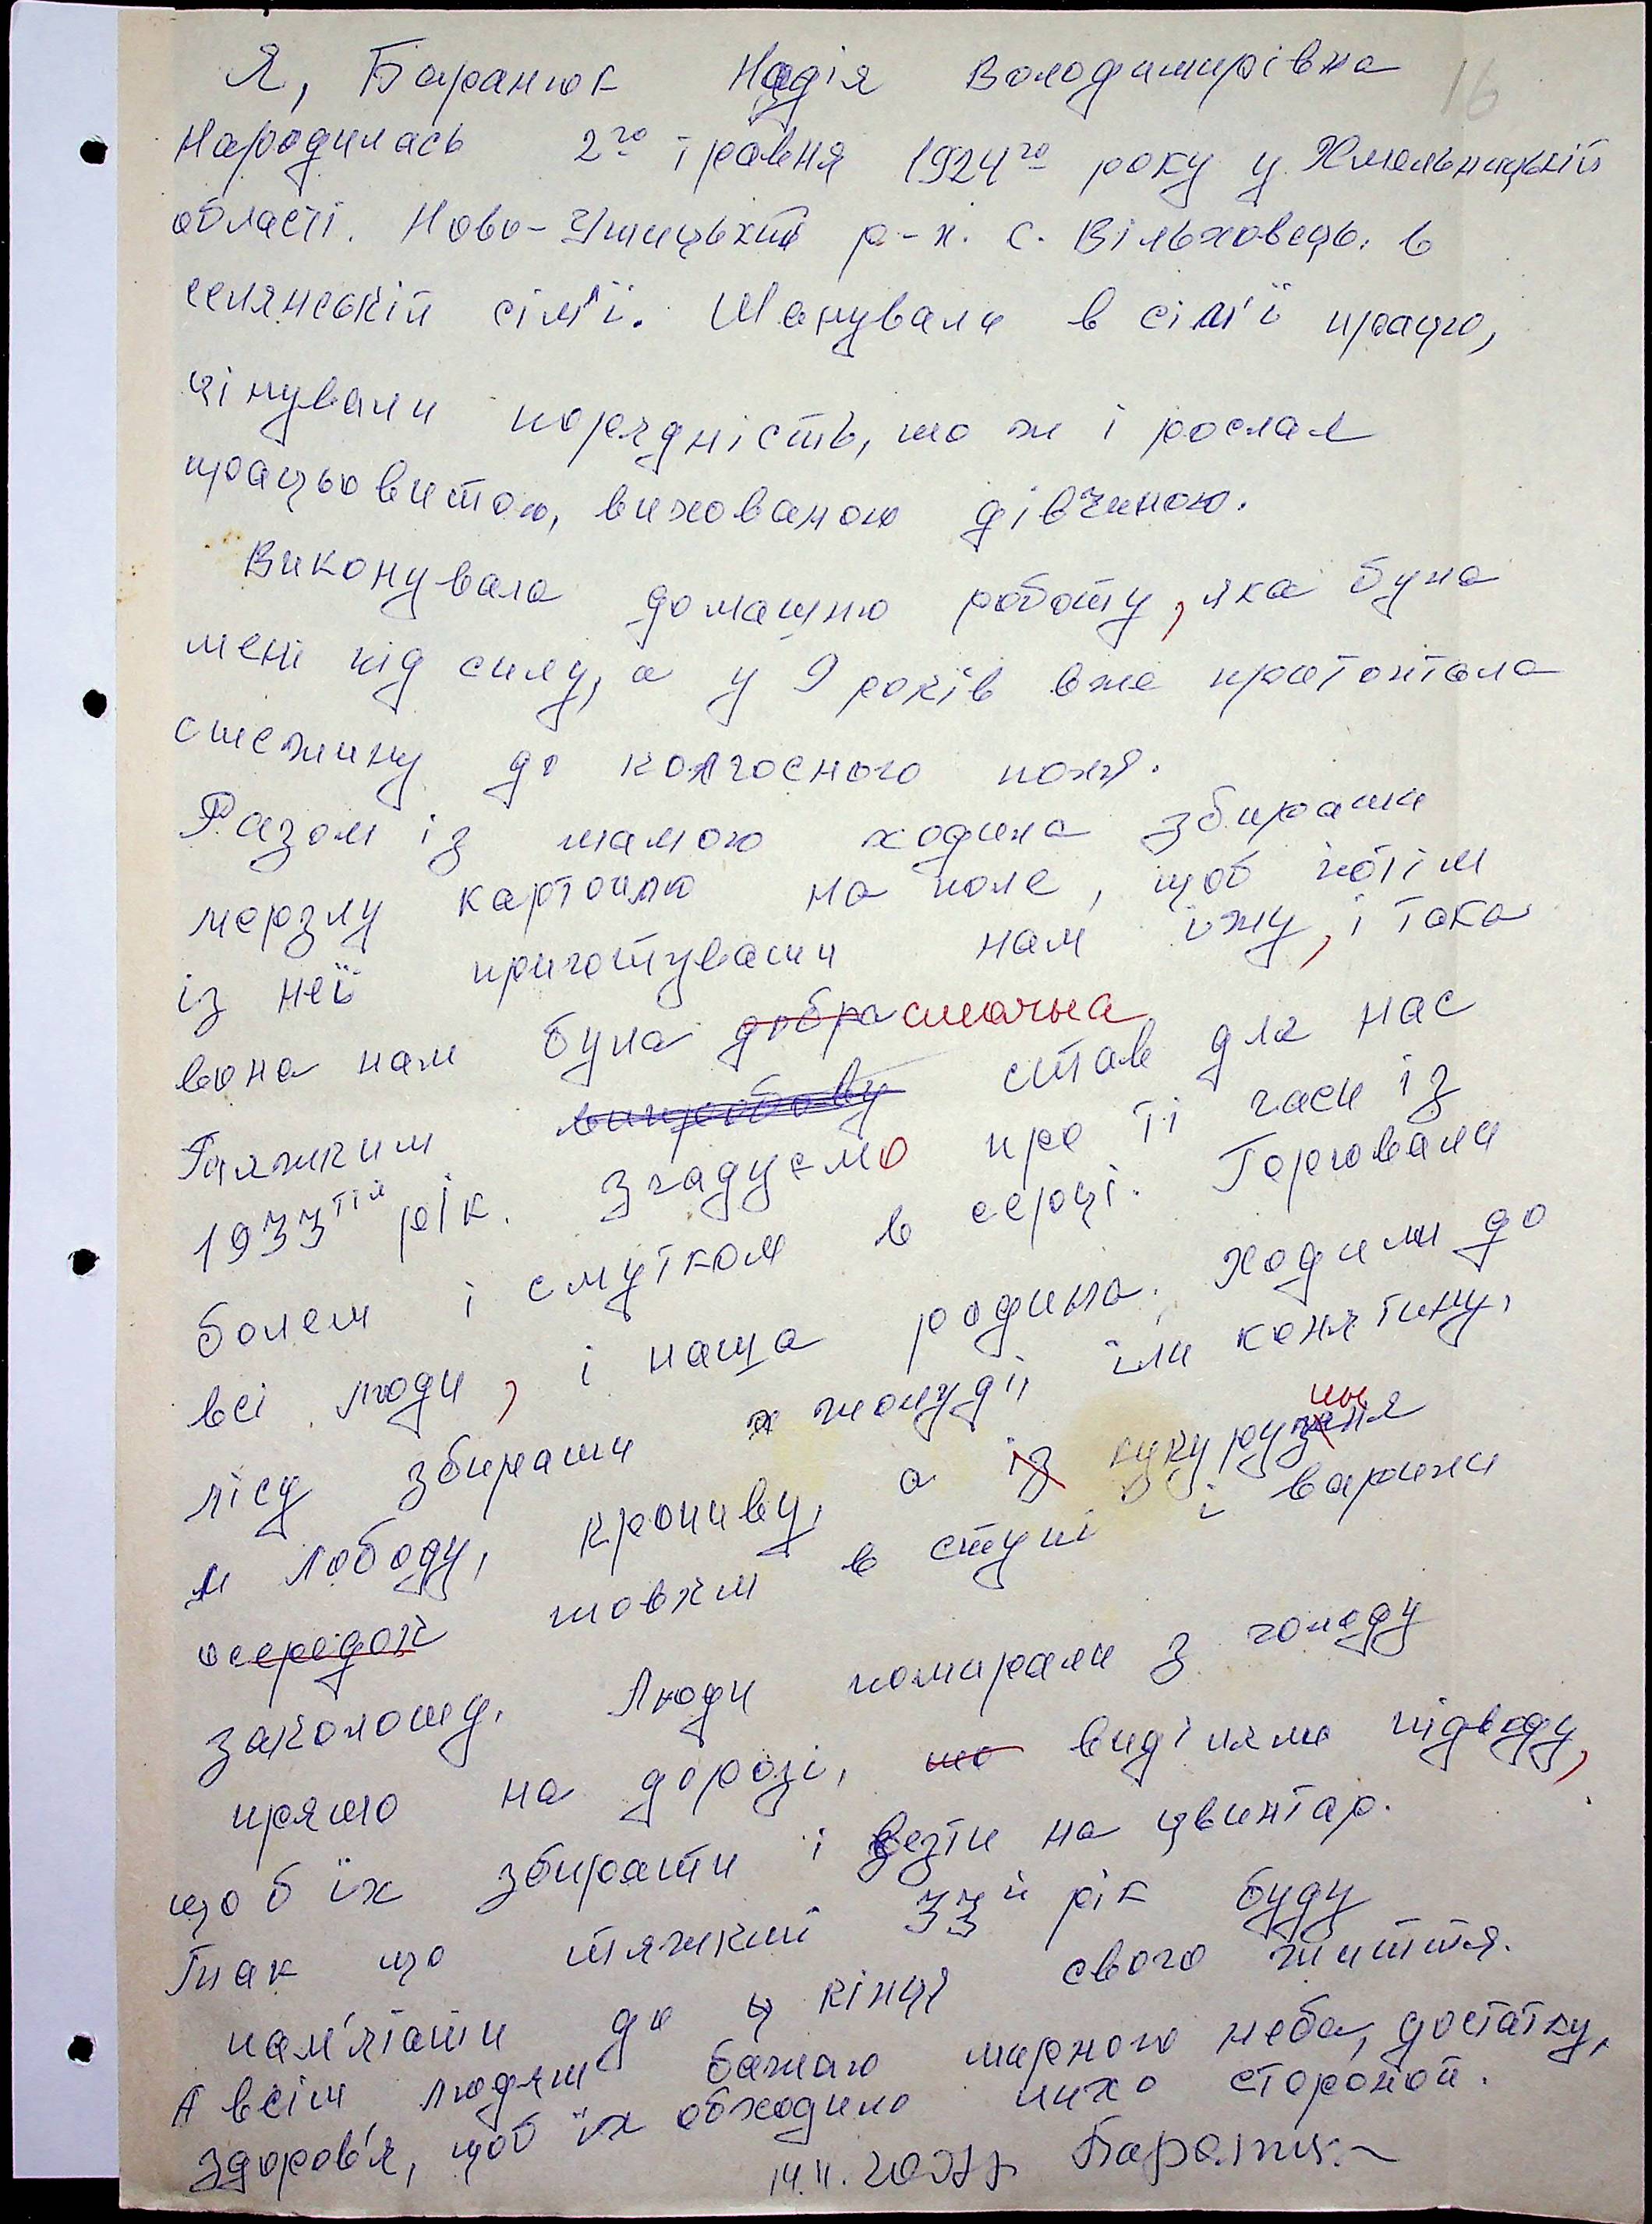 16
Я, Баранюк Надія Володимирівна
народилась 2го травня 1924го року у Хмельницькій
області. Ново-Ушицький р-н. с. Вільховець. в
селянській сім'ї. Шанували в сім'ї працю,
цінували порядність, то ж і росла я
працьовитою, вихованою дівчиною.
Виконувала домашню роботу, яка була
мені під силу, а у 9 років вже протоптала
стежину до колгоспного поля.
Разом із мамою ходила збирати
мерзлу картоплю на поле, щоб потім
із неї приготувати нам їжу, і така
вона нам була добра смачна
Тяжким випробову став для нас
1933тій рік. Згадуємо про ті часи із
болем і смутком в серці. Горювали
всі люди, і наша родина. Ходили до
лісу збирати жолуді, їли конятину,
лободу, кропиву, а із кукурузиння
осередок товкли в ступі і варили
заколоту. Люди помирали з голоду
прямо на дорозі, то виділяли підводу,
щоб їх збирати і везти на цвинтар.
Так що тяжкий 33й рік буду
пам'ятати до кінця свого життя.
А всім людям бажаю мирного неба, достатку,
здоров'я, щоб їх обходило лихо стороной.
14.11.2007р